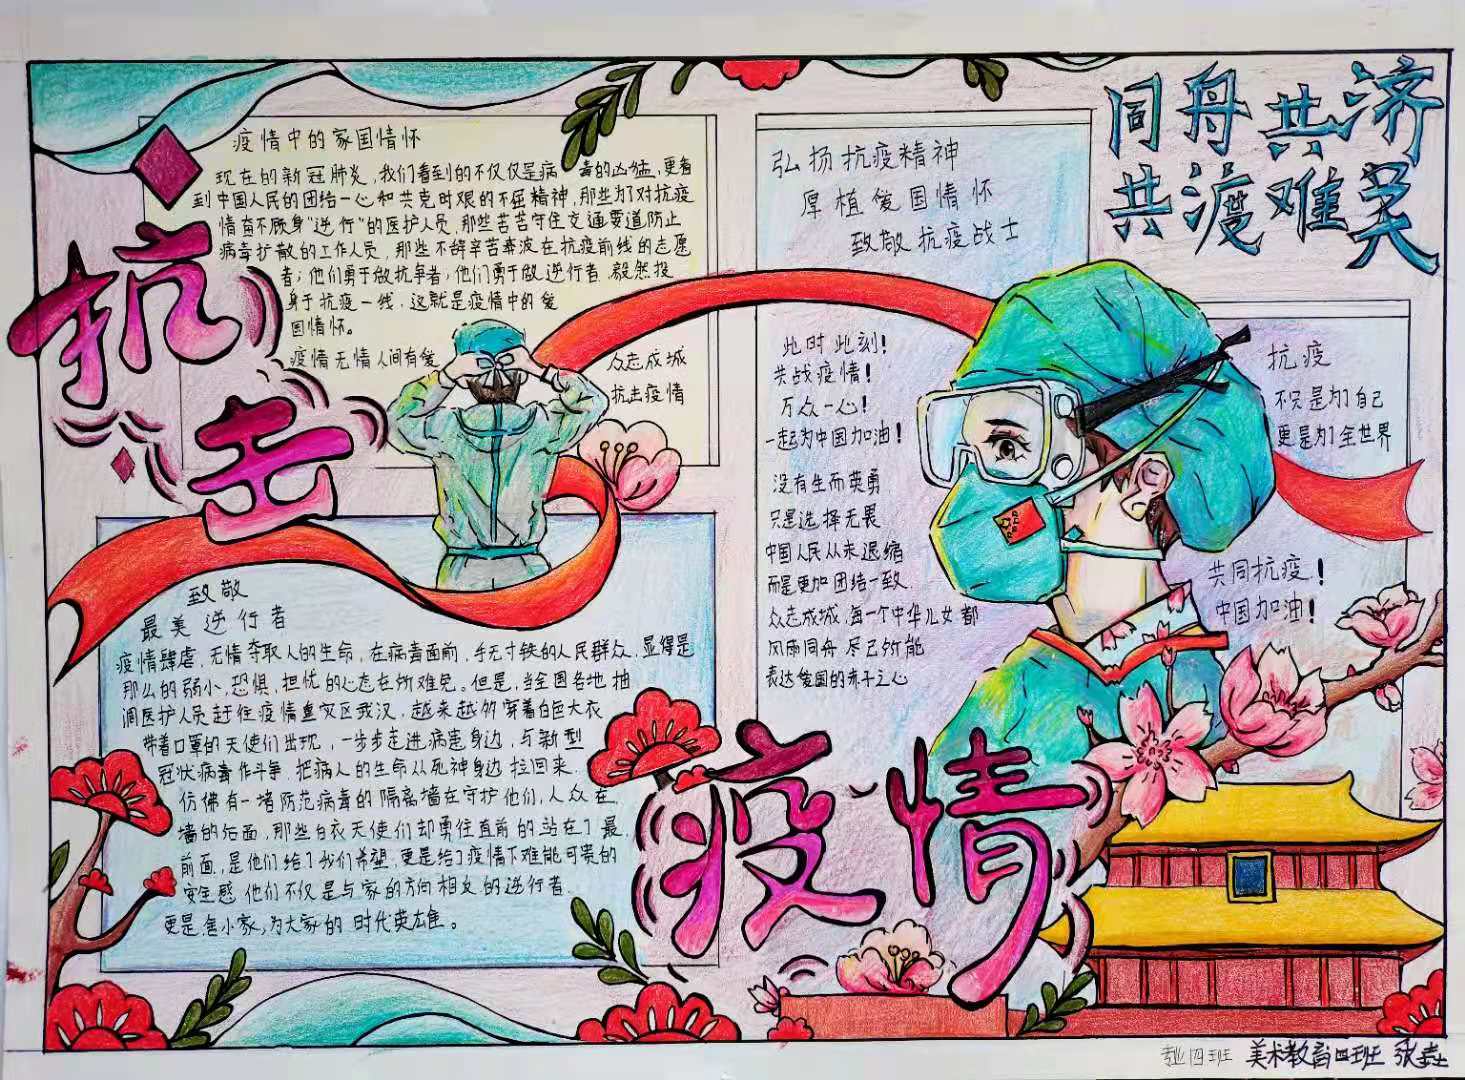 同舟共济
共渡难关
抗击
疫情
疫情中的家国情怀
现在的新冠肺炎,我们看到的不仅仅是病毒的凶猛,更看
到中国人民的团结一心和共克时艰的不屈精神,那些为了对抗疫
情奋不顾身"逆行"的医护人员,那些苦苦守住交通要道防止
病毒扩散的工作人员,那些不辞辛苦奔波在抗疫前线的志愿
者;他们勇于做抗争者;他们勇于做逆行者,毅然投
身于抗疫一线,这就是疫情中的爱
国情怀。
疫情无情人间有爱
众志成城
抗击疫情
弘扬抗疫精神
厚植爱国情怀
致敬抗疫战士
此时此刻!
共战疫情!
万众一心!
一起为中国加油!
没有生而英勇
只是选择无畏
中国人民从未退缩
而是更加团结一致.
众志成城,每一个中华儿女都
风雨同舟 尽己所能
表达爱国的赤子之心
抗疫
不只是为了自己
更是为了全世界
共同抗疫!
中国加油!
致敬
最美逆行者
疫情肆虐,无情夺取人的生命,在病毒面前,手无寸铁的人民群众,显得是
那么的弱小,恐惧,担忧的心态在所难免。但是,当全国各地抽
调医护人员赶往疫情重灾区武汉,越来越多穿着白色大衣
带着口罩的天使们出现,一步步走进病患身边,与新型
冠状病毒作斗争,把病人的生命从死神身边拉回来.
仿佛有一堵防范病毒的隔离墙在守护他们,人众在
墙的后面,那些白衣天使们却勇往直前的站在了最
前面,是他们给了我们希望,更是给了疫情下难能可贵的
安全感 他们不仅是与家的方向相反的逆行者.
更是舍小家,为大家的时代英雄。
专业四班 美术教育四班 张垚